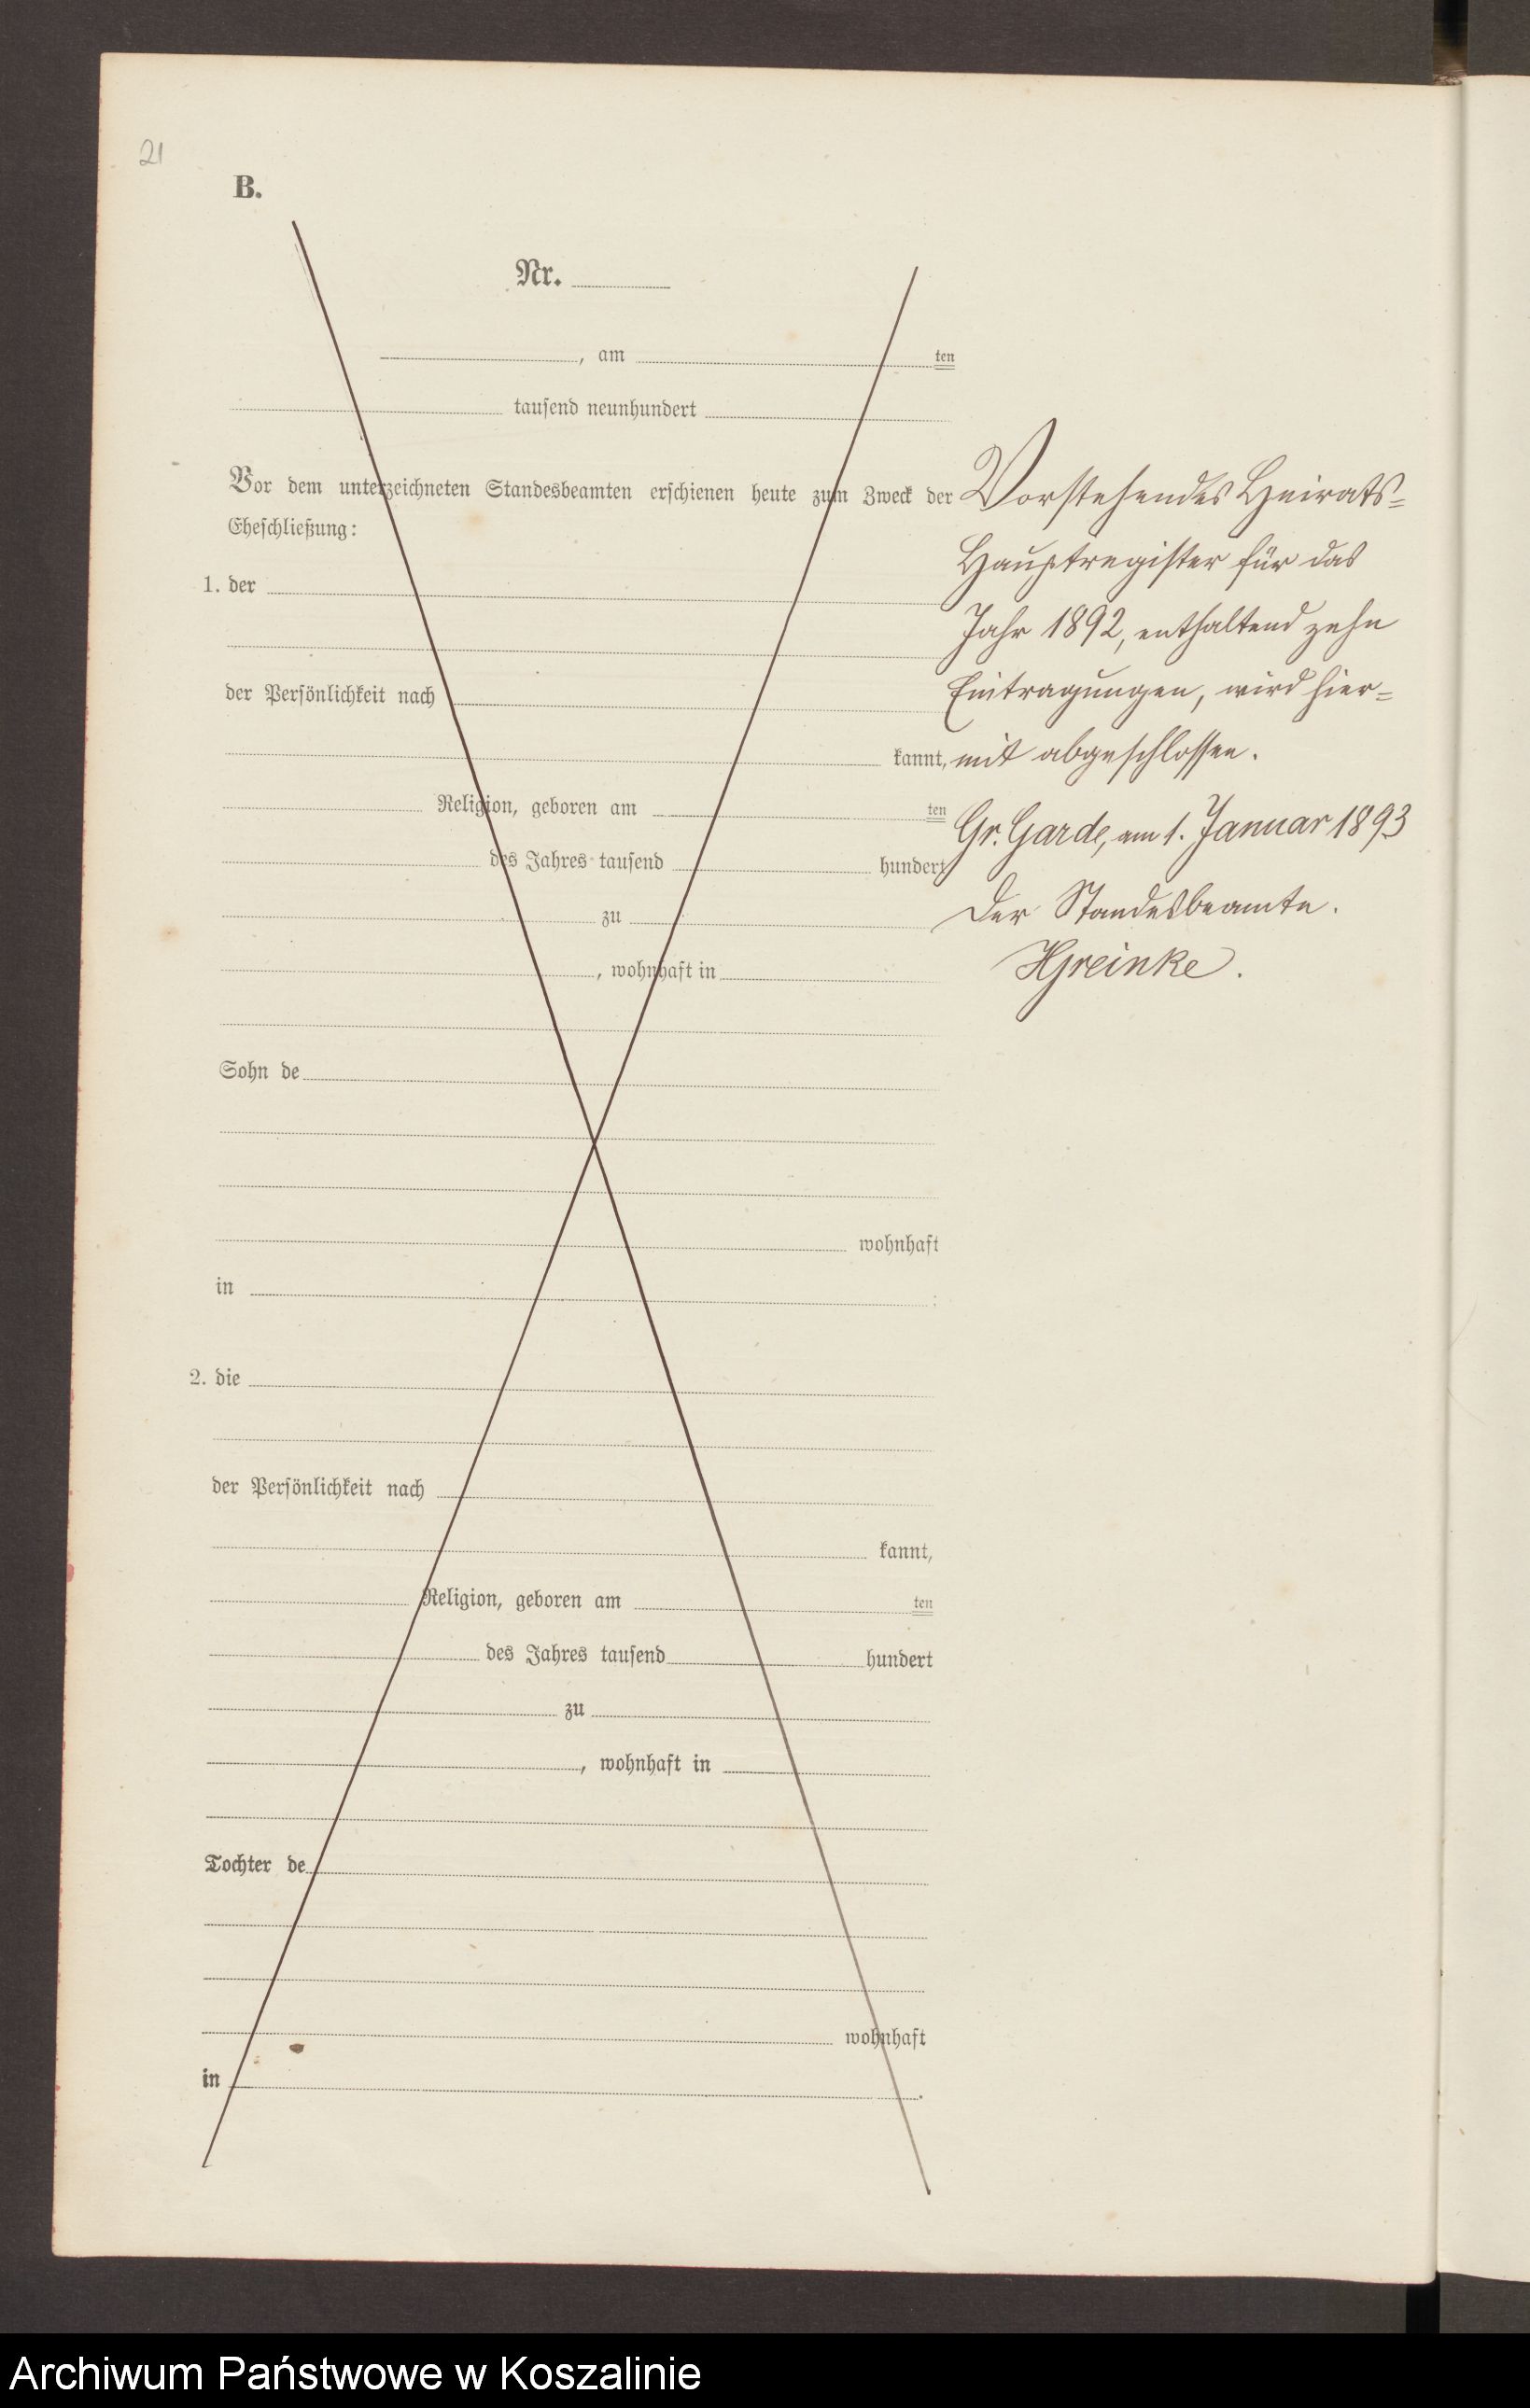 21
B.
Nr.
, am ten
tausend neunhundert
Vor dem unterzeichneten Standesbeamten erschienen heute zum Zweck der
Eheschließung:
1. der
der Persönlichkeit nach
kannt,
Religion, geboren am ten
des Jahres tausend hundert
zu
, wohnhaft in
Sohn de
wohnhaft
in ;
2. die
der Persönlichkeit nach
kannt,
Religion, geboren am ten
des Jahres tausend hundert
zu
, wohnhaft in
Tochter de
wohnhaft
in .
Vorstehendes Heirats=
Hauptregister für das
Jahr 1892, enthaltend zehn
Eintragungen, wird hier=
mit abgeschlossen.
Gr. Garde, am 1. Januar 1893
Der Standesbeamte.
Archiwum Państwowe w Koszalinie